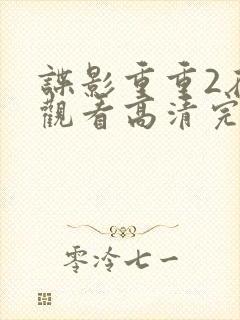 諜影重重2
觀看高清完
零泠七一